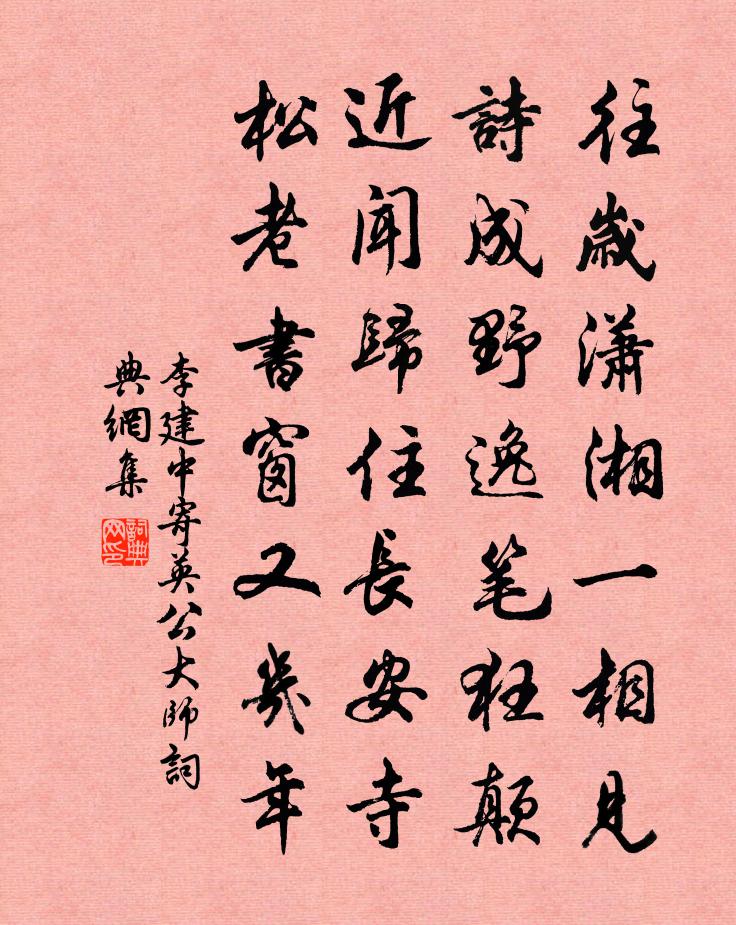 往歲瀟湘一相見
詩成野逸笔狂顛
近聞歸住長安寺
松老書窗又幾年
李建中寄英公大師詞
典網集
詞典
网印